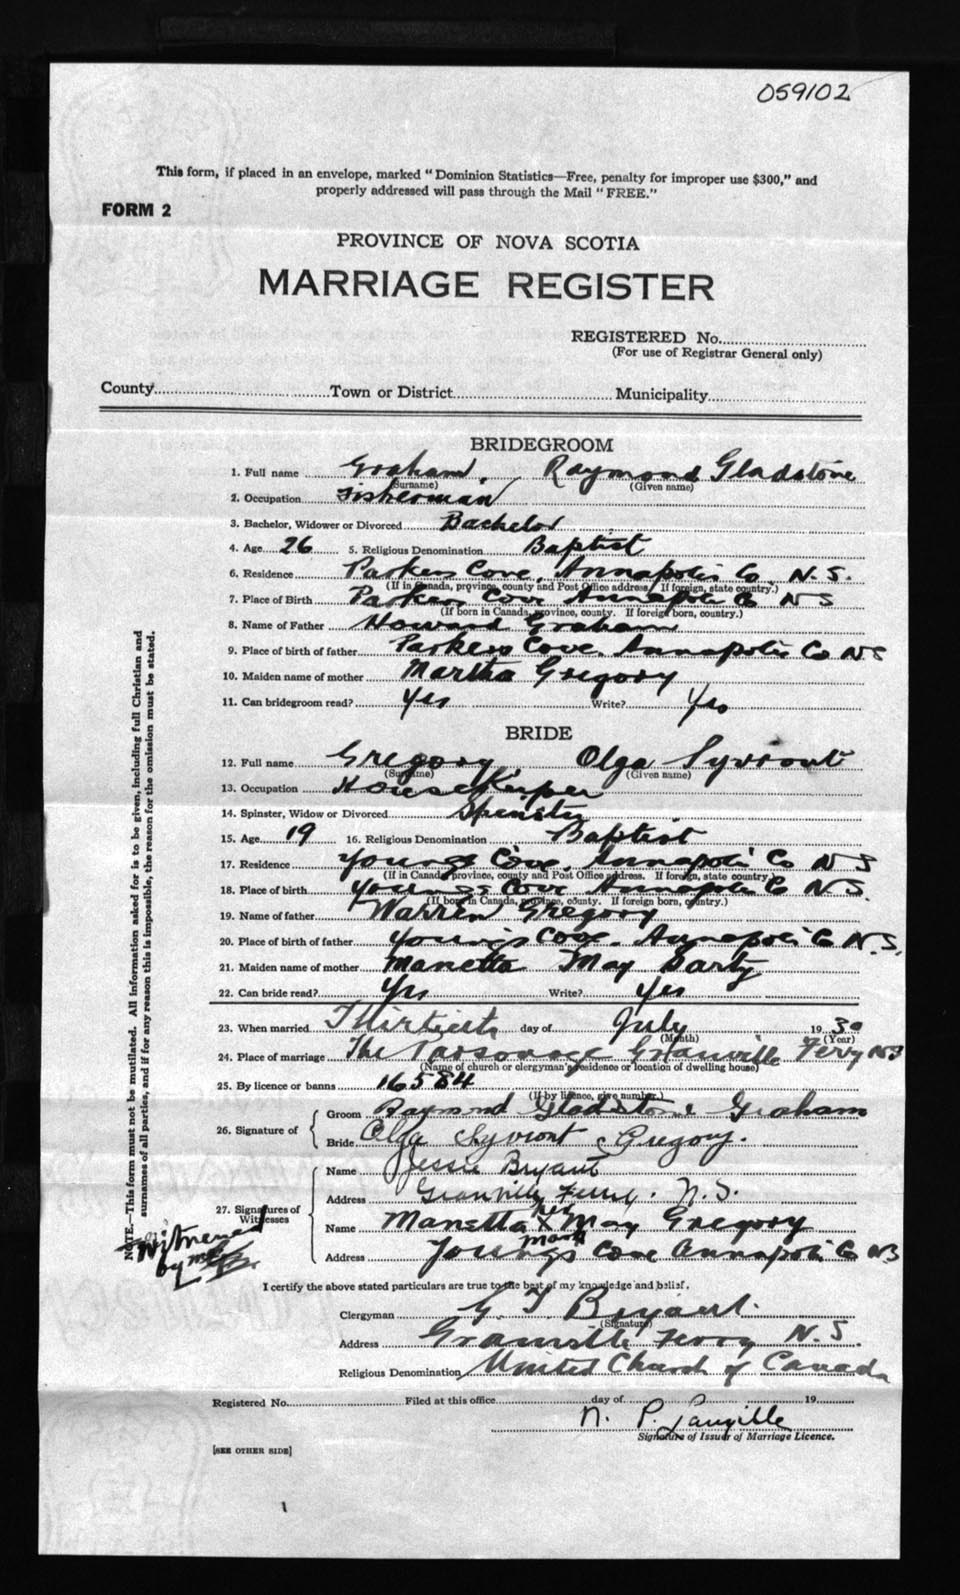 059102
This form, if placed in an envelope, marked "Dominion Statistics—Free, penalty for improper use $300," and
properly addressed will pass through the Mail "FREE."
FORM 2
PROVINCE OF NOVA SCOTIA
MARRIAGE REGISTER
REGISTERED No.
(For use of Registrar General only)
County Town or District Municipality
BRIDEGROOM
1. Full name Graham, Raymond Gladstone
(Surname) (Given name)
2. Occupation Fisherman
3. Bachelor, Widower or Divorced Bachelor
4. Age 26 5. Religious Denomination Baptist
6. Residence Parkers Cove, Annapolis Co. N.S.
(If in Canada, province, county and Post Office address. If foreign, state country.)
7. Place of Birth Parkers Cove Annapolis Co NS
(If born in Canada, province, county. If foreign born, country.)
8. Name of Father Howard Graham
9. Place of birth of father Parkers Cove. Annapolis Co NS
10. Maiden name of mother Martha Gregory
11. Can bridegroom read? Yes Write? Yes
BRIDE
12. Full name Gregory Olga Syvront
(Surname) (Given name)
13. Occupation House Keeper
14. Spinster, Widow or Divorced Spinster
15. Age 19 16. Religious Denomination Baptist
17. Residence Youngs Cove, Annapolis Co NS
(If in Canada, province, county and Post Office address. If foreign, state country
18. Place of birth Youngs Cove Annapolis Co NS.
(If born in Canada, province, county. If foreign born, country.)
19. Name of father Warren Gregory
20. Place of birth of father Youngs Cove. Annapolis Co N.S.
21. Maiden name of mother Manetta May
22. Can bride read? Yes Write? Yes
23. When married Thirtieth day of July 1930
(Month) (Year)
24. Place of marriage The Parsonage Granville Ferry NS
(Name of church or clergyman's residence or location of dwelling house)
25. By licence or banns 16584
(If by licence, give number.)
26. Signature of
Groom Raymond Gladstone Graham
Bride Olga Syvront Gregory.
27. Signatures of
Witnesses
Name Jessie Bryant
Address Granville Ferry. N.S.
Name Manetta her x mark May Gregory
Address Youngs Cove Annapolis Co NS
Witnessed
by me
NOTE.—This form must not be mutilated. All information asked for is to be given, including full Christian and
surnames of all parties, and if for any reason this is impossible, the reason for the omission must be stated.
I certify the above stated particulars are true to the best of my knowledge and belief.
Clergyman G. T. Bryant.
(Signature)
Address Granville Ferry N.S.
Religious Denomination United Church of Canada
Registered No. Filed at this office day of 19
N. P. Langille
Signature of Issuer of Marriage Licence.
[SEE OTHER SIDE]